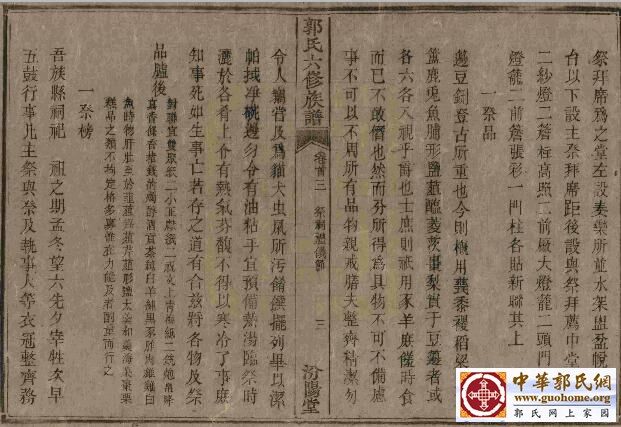 祭拜席爲之堂左設奏樂所並水架盥盆帨
台以下設主祭拜席距後設與祭拜薦中堂
二紗燈二簷柱高照二前厰大燈籠二頭門
燈籠二前簷張彩一門柱各貼新聯其上
一祭品
籩豆鉶登古所重也今則概用甆黍稷稻
鹿兎魚形鹽葅醢菱茨棗梨實于豆籩者或
各六各八視乎爵也士庶則祇用家羊庶饈時食
而已不敢僭也然而分所得爲具物不可不備慮
事不可以不周所有品物親戒膳夫整齊精潔勿
郭氏六修族譜
卷首三
祭祠禮儀節
三
汾陽堂
令人嘗及爲貓犬虫鼠所污餚饌擺列畢以潔
帕拭净椀邊勿令有油粘乎宜預備熱湯臨祭時
灑於各肴上令有熱氣芬馥不得以寒冷了事庶
知事死如生事亡若存之道有合玆將各物及祭
品臚後
一祭榜
吾族縣祠祀 祖之期孟冬望六先夕宰牲次早
五鼓行事凡主祭與祭及執事人等衣冠整齊務
中華郭氏網
www.guohome.org
郭氏网上家园